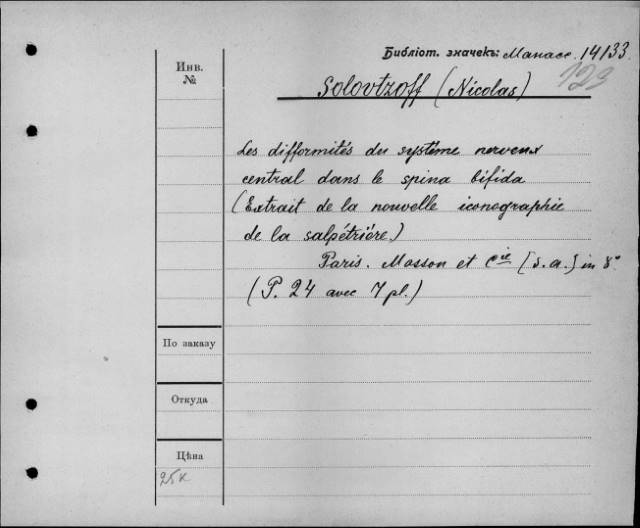 Библіот. значекъ: Манасс. 14133
123
Инв.
№
Solovtzoff (Nicolas)
Les difformités du système nerveux
central dans le spina bifida
(Extrait de la nouvelle iconographie
de la salpétrière.)
Paris. Masson et Cie [s.a.] in 8°
(P. 24 avec 7 pl.)
По заказу
Откуда
Цѣна
25 к